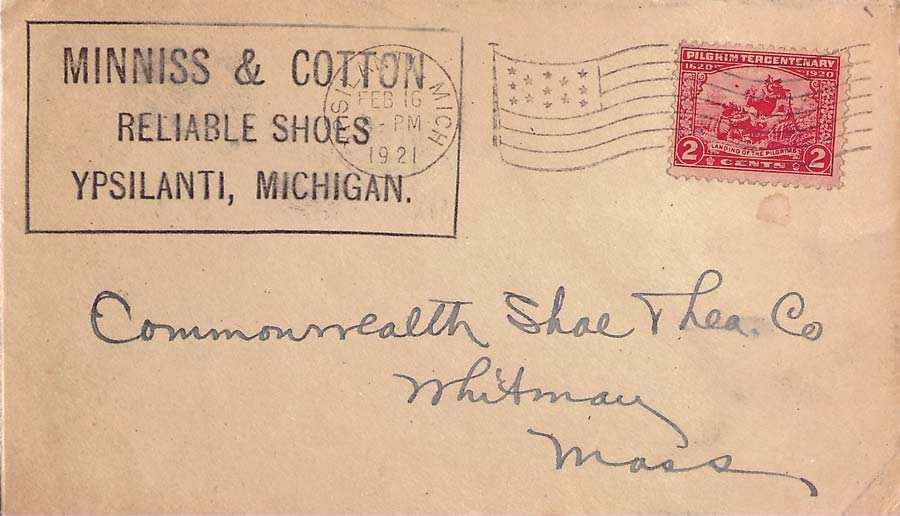 MINNISS & COTTON
RELIABLE SHOES
YPSILANTI, MICHIGAN.
MICH
FEB 16
PM
1921
PILGRIM TERCENTENARY
1620 1920
LANDING OF THE PILGRIMS
2 CENTS 2
Commonwealth Shoe & Lea. Co
Whitman
Mass